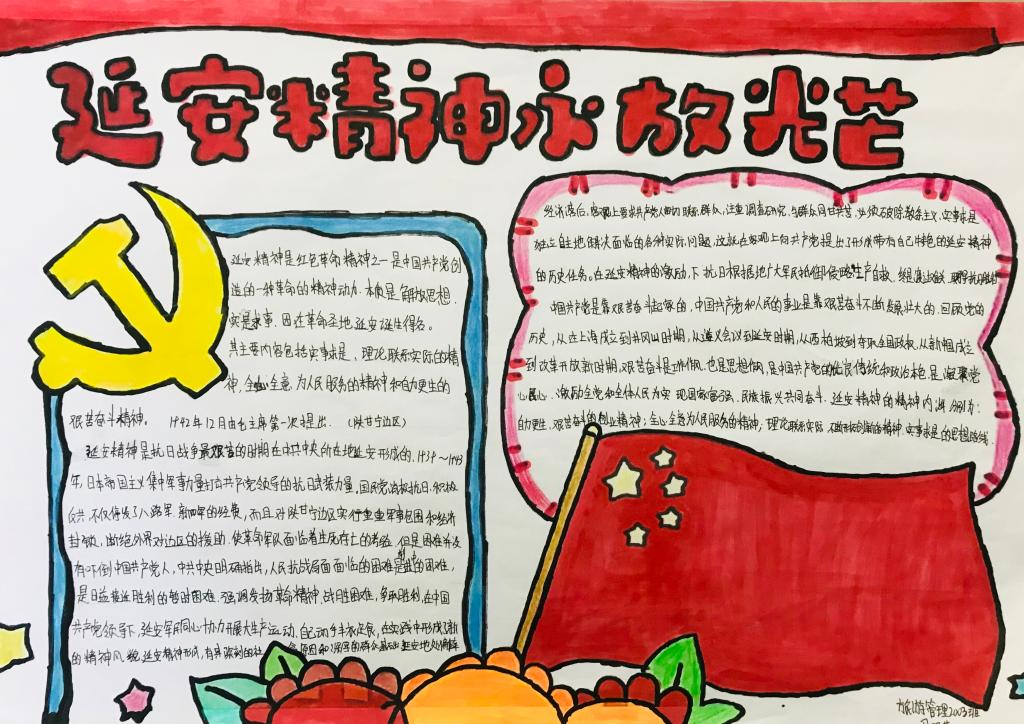 延安精神永放光芒
延安精神是红色革命精神之一是中国共产党创
造的一种革命的精神动力.本质是解放思想.
实是求事.因在革命圣地延安诞生得名。
其主要内容包括实事求是、理论联系实际的精
神,全心全意为人民服务的精神和自力更生的
艰苦奋斗精神。1942年12月由毛主席第一次提出.(陕甘宁边区)
延安精神是抗日战争最艰苦的时期在中共中央所在地延安形成的.1939～1943
年,日本帝国主义集中军事力量打击共产党领导的抗日武装力量,国民党消极抗日.积极
反共.不仅停发了八路军.新四军的经费,而且对陕甘宁边区实行重重军事包围和经济
封锁,断绝外界对边区的援助.使革命军队面临着生死存亡的考验.但是困难并没
有吓倒中国共产党人,中共中央明确指出,人民抗战局面面临的困难是的困难,
是日益接近胜利的暂时困难.强调发扬革命精神,战胜困难,争取胜利.在中国
共产党领导下,延安军民同心协力开展大生产运动.自己动手丰衣足食,在实践中形成了新
的精神风貌.延安精神形成,有其深刻的社
经济落后.客观上要求共产党人密切联系群众,注重调查研究.与群众同甘共苦.必须破除教条主义.实事求是
独立自主地解决面临的各种实际问题,这就在客观上向共产党提出了形成带有自己特色的延安精神
的历史任务。在延安精神的激励下.抗日根据地广大军民抵御侵略
中国共产党是靠艰苦奋斗起家的,中国共产党和人民的事业是靠艰苦奋斗不断发展壮大的.回顾党的
历史,从在上海成立到井冈山时期,从遵义会议到延安时期,从西柏坡到夺取全国政权.从新中国成立
到改革开放新时期,艰苦奋斗是工作作风,也是思想作风,是共产党的优良传统和政治本色是凝聚党
心民心.激励全党和全体人民为实现国家富强、民族振兴共同奋斗.延安精神的精神内涵分别为:
自力更生.艰苦奋斗的创业精神;全心全意为人民服务的精神,理论联系实际.不断开拓创新的精神.实事求是的思想路线.
旅游管理2003班